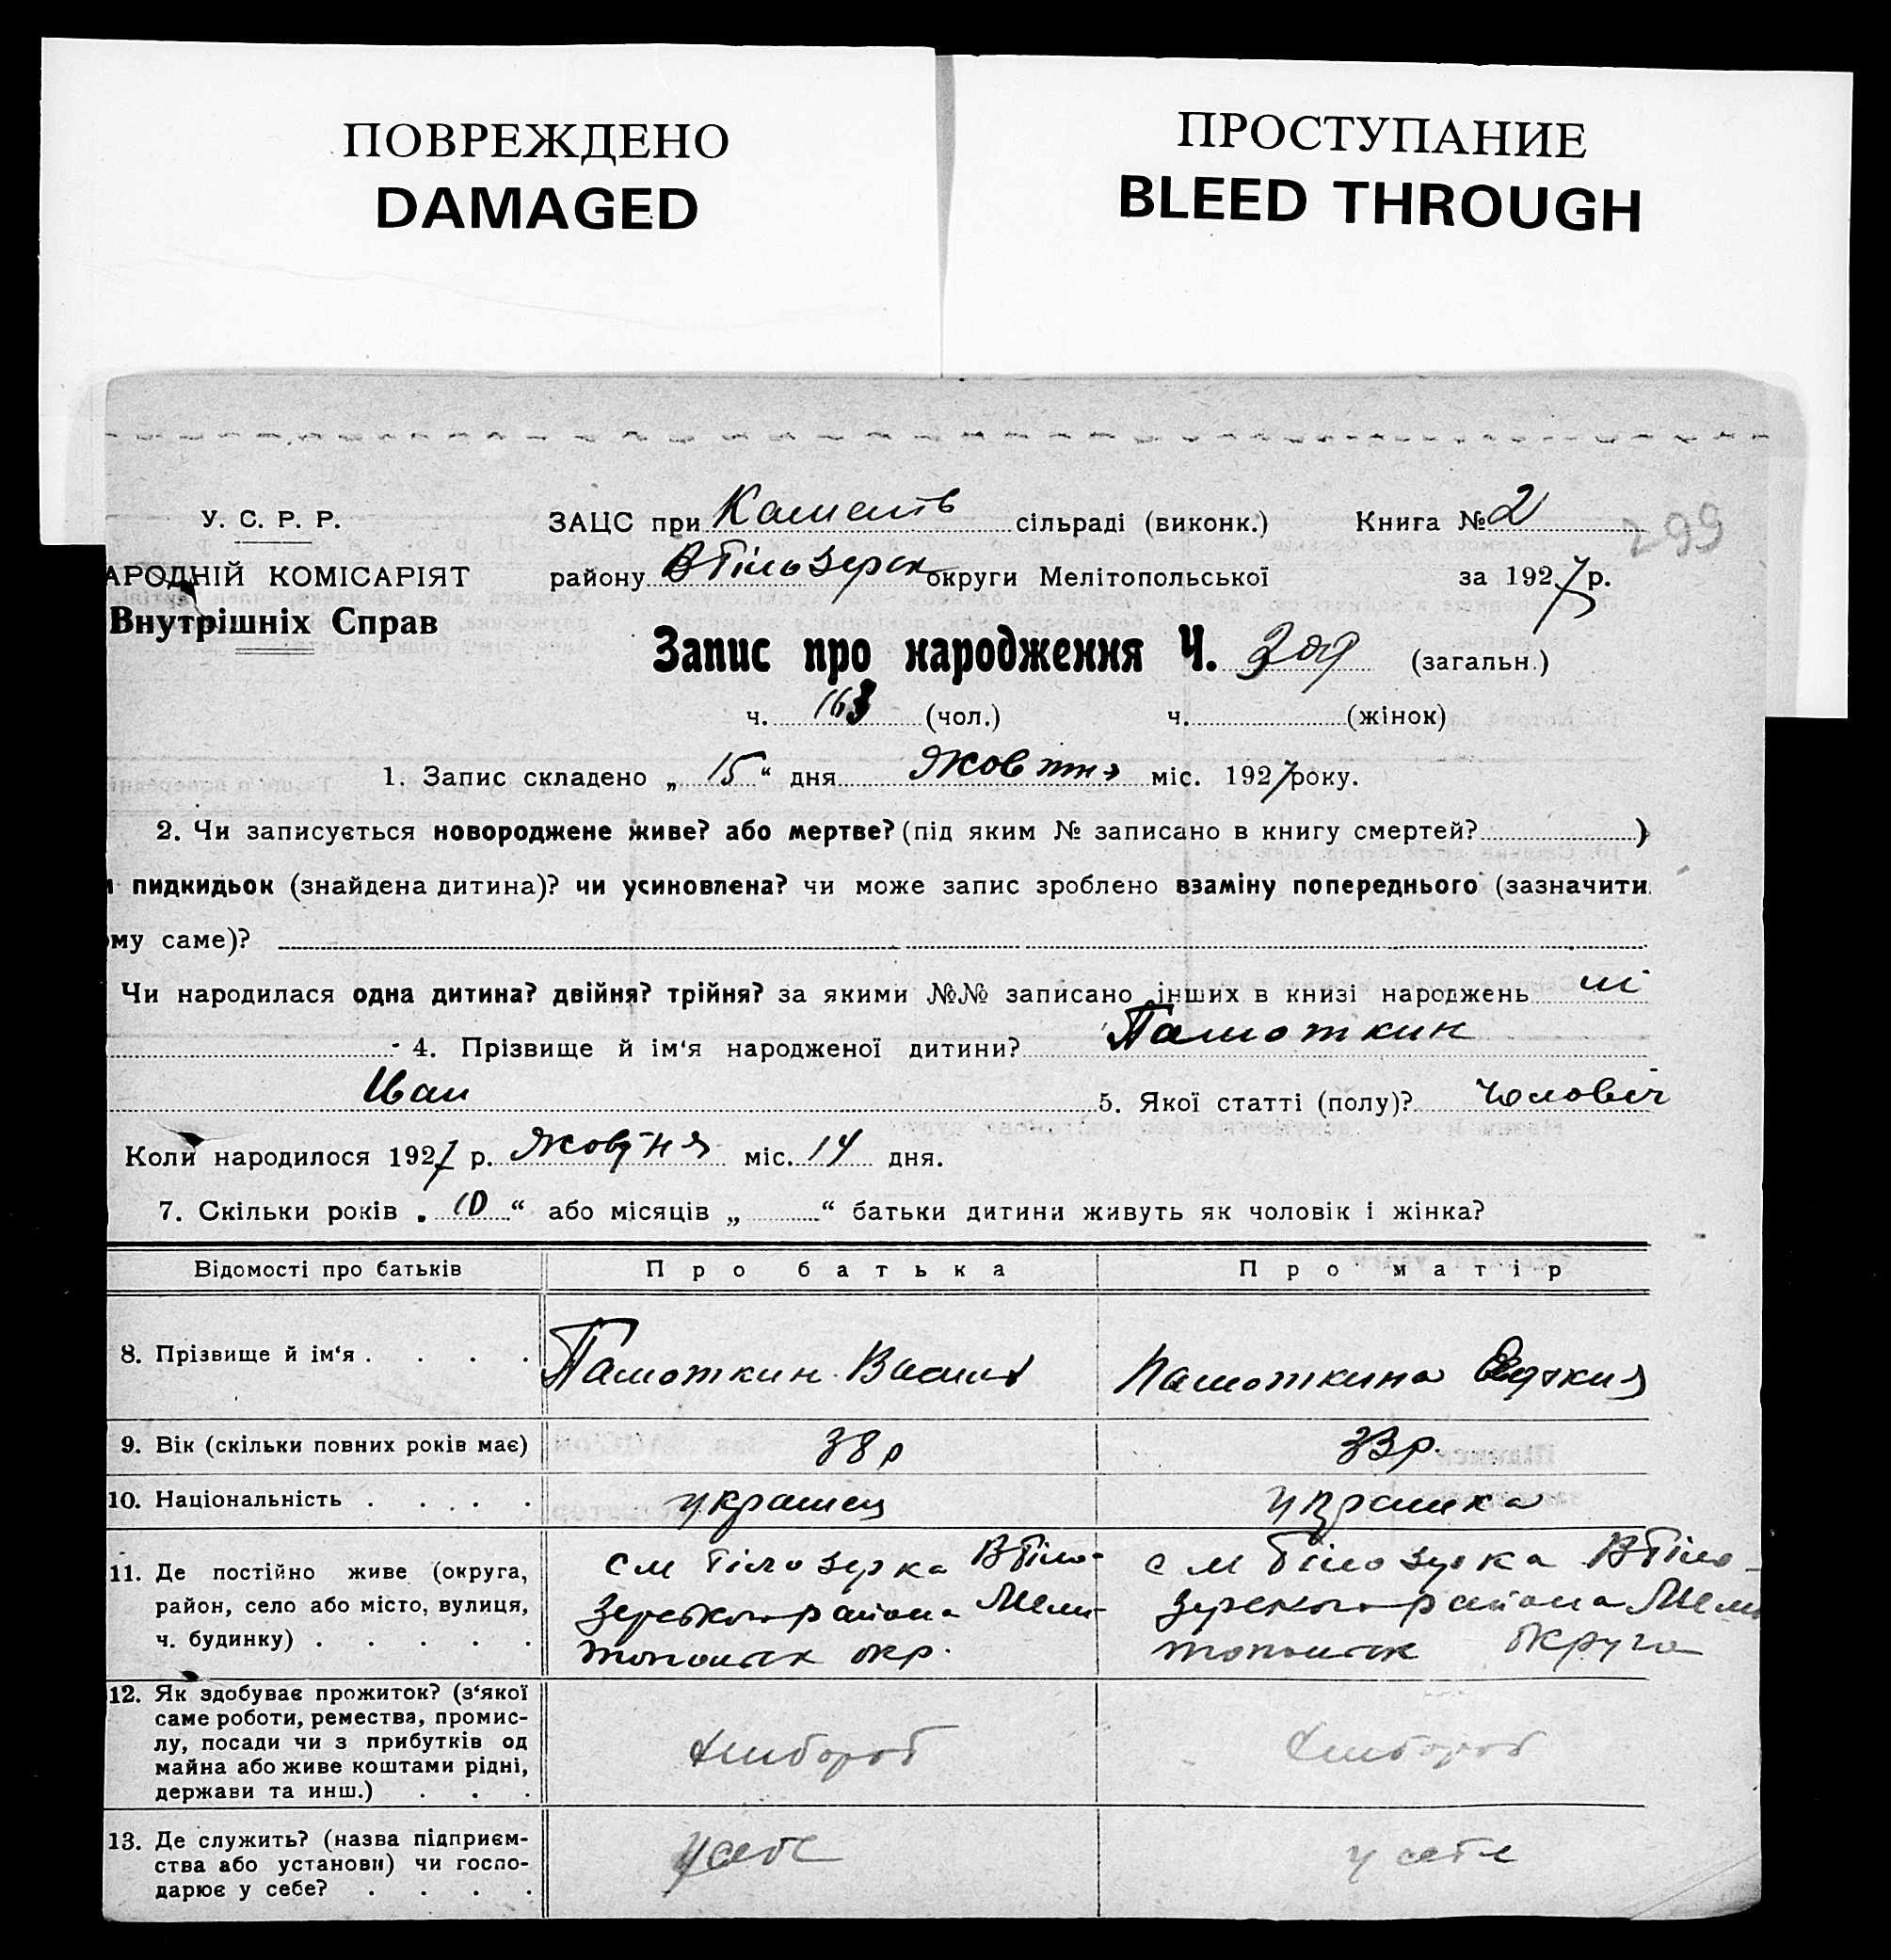 ПОВРЕЖДЕНО
DAMAGED
ПРОСТУПАНИЕ
BLEED THROUGH
У. С. Р. Р.
АРОДНІЙ КОМІСАРІЯТ
Внутрішніх Справ
ЗАЦС при сільраді (виконк.) Книга № 2 299
району округи Мелітопольської за 1927 р.
Запис про народження Ч. (загальн.)
ч. 163 (чол.) ч. (жінок)
1. Запис складено „ 15 “ дня Жовтня міс. 1927 року.
2. Чи записується новороджене живе? або мертве? (під яким № записано в книгу смертей? )
и пидкидьок (знайдена дитина)? чи усиновлена? чи може запис зроблено взаміну попереднього (зазначити
ому саме)?
Чи народилася одна дитина? двійня? трійня? за якими №№ записано інших в книзі народжень ні
4. Прізвище й ім‘я народженої дитини? Памоткин
Иван 5. Якої статті (полу)? чоловіч
Коли народилося 1927 р. Жовтня міс. 14 дня.
7. Скільки років „ 10 “ або місяців „ “ батьки дитини живуть як чоловік і жінка?
Відомості про батьків Про батька Про матір
8. Прізвище й ім‘я . . . . Памоткин Василь Памоткина
9. Вік (скільки повних років має) 38 р 33 р.
10. Національність . . . . . украинец украинка
11. Де постійно живе (округа, район, село або місто, вулиця, ч. будинку) . . . . .
см Білозерка ВБіло-
зерського района Мели-
топольск окр.
см Білозерка ВБіло-
зерского района Мели
топольск округа
12. Як здобуває прожиток? (з‘якої
саме роботи, ремества, промис-
лу, посади чи з прибутків од
майна або живе коштами рідні,
держави та инш.) . . .
хлибороб хлибороб
13. Де служить? (назва підприєм-
ства або установи) чи госпо-
дарює у себе? . . . .
у себе у себе